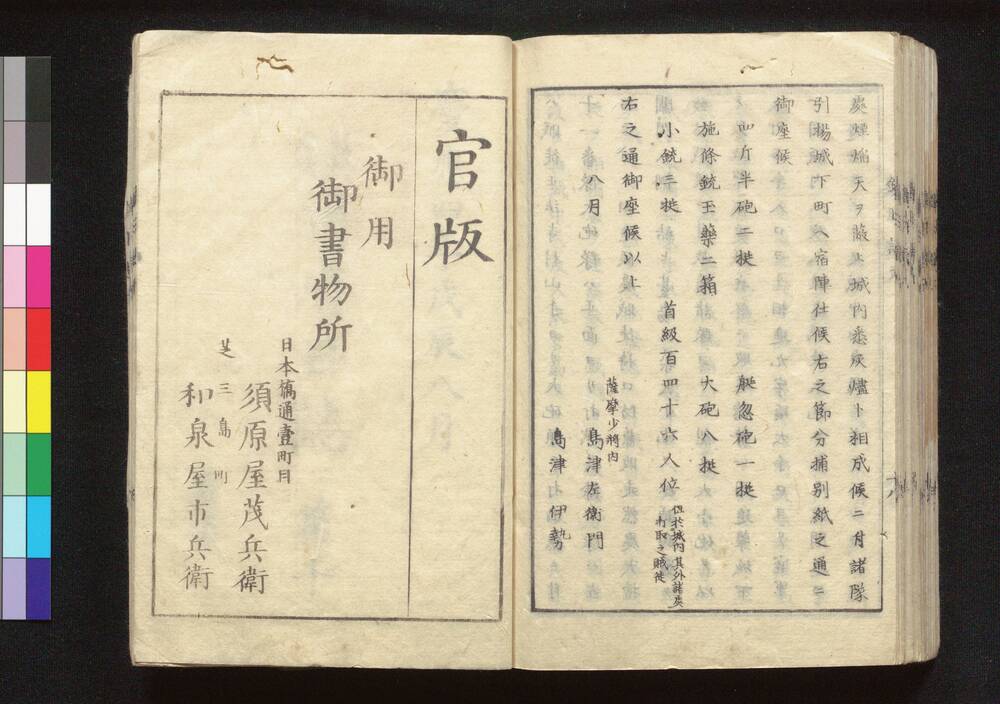 炎煙焔天ヲ蔽ㇶ城内悉灰燼ト相成候ニ付諸隊
引揚城下町ヘ宿陣仕候右之節分捕別紙之通ニ
御座候
四斤半砲二挺 艇忽砲一挺
施條銃玉藥二箱 大砲八挺
小銃三挺 首級百四十六人位 但於城内其外諸処打取之賊徒
右之通御座候以上
八月 薩摩少将内 島津左衛門
島津伊勢
官版
御用
御書物所
日本橋通壹町目
須原屋茂兵衛
芝三島町
和泉屋市兵衛